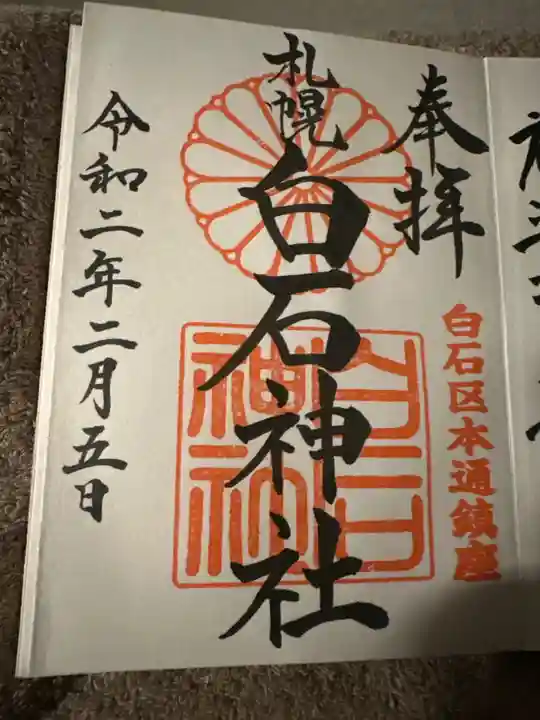 奉拝
白石区本通鎮座
札幌
白石神社
白石神社
令和二年二月五日